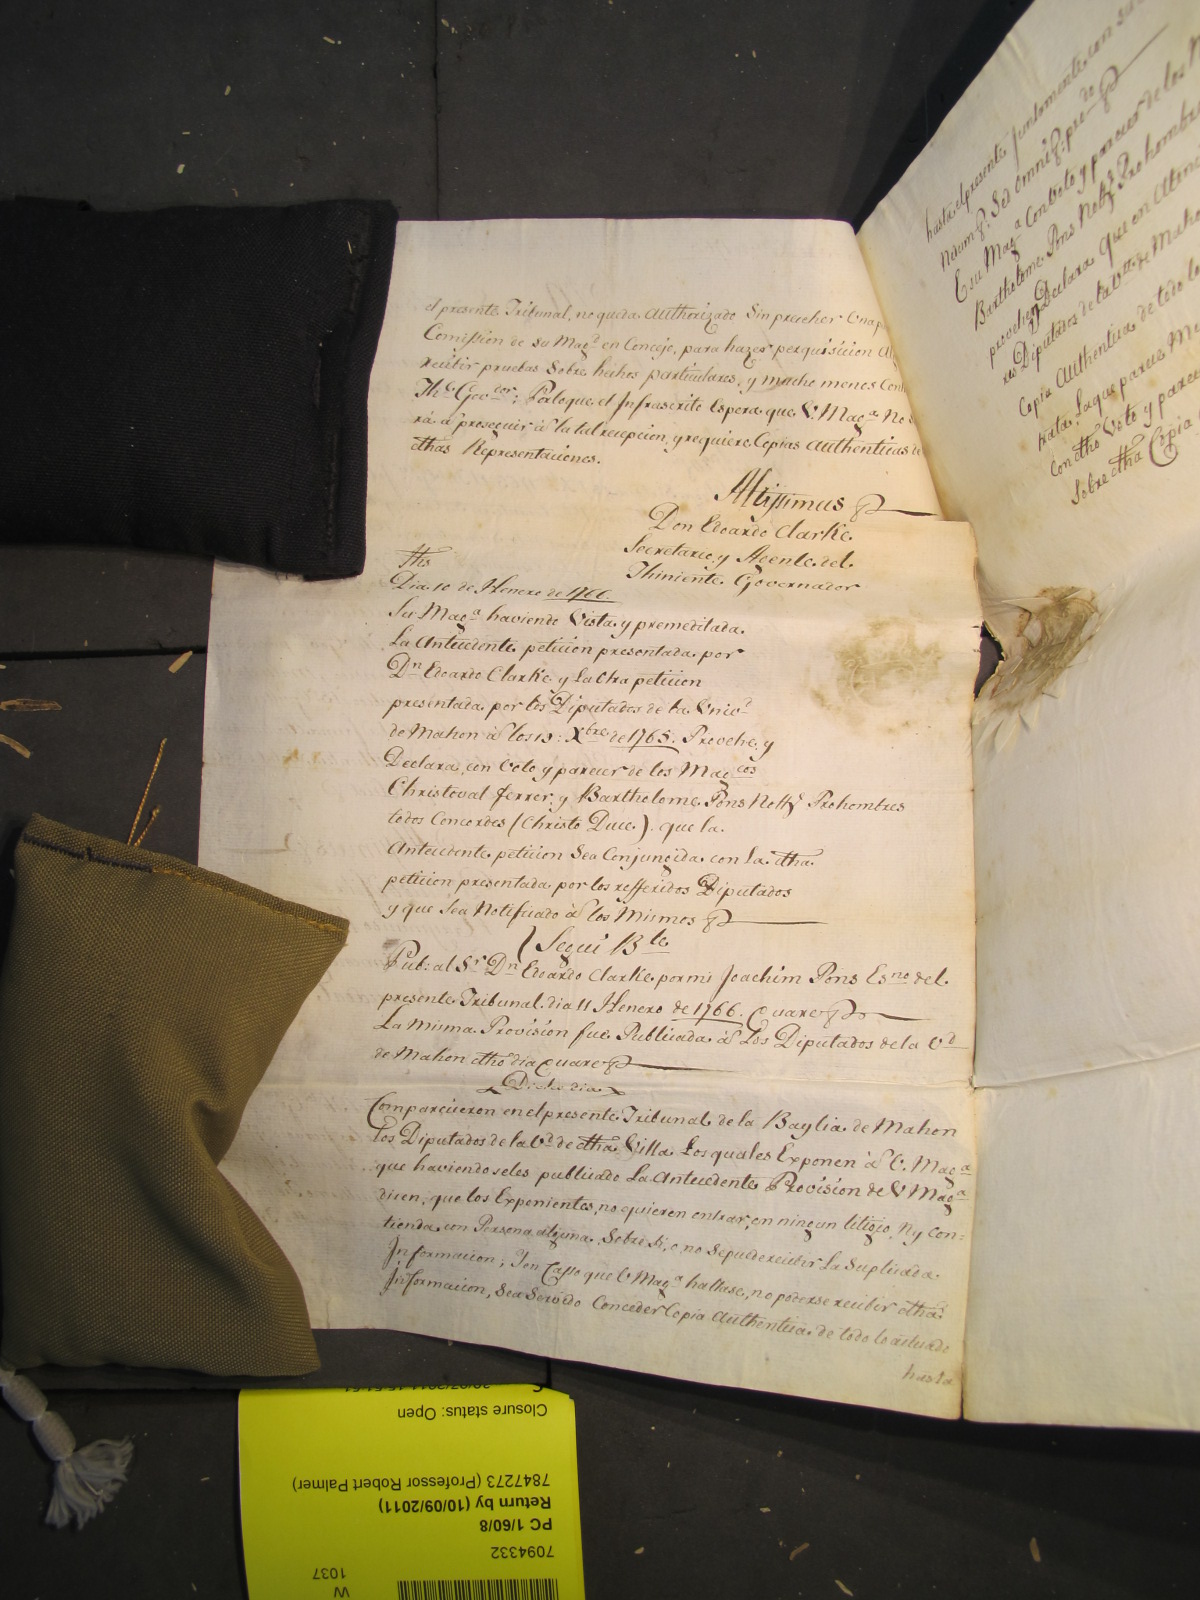 el presente Tribunal, no queda Authorizado Sin preceher Una
Comission de su Mag.d en Concejo, para hazer perquisicion
recibir pruebas Sobre hechos particulares, y mucho menos
Th.e Gov.dor; Porloque el Infrascrito Espera que V. Mag.a No
rá á proseguir á la tal recepcion, y requiere Copias Authenticas de
dthas Representaciones.
Altissimus
Don Edoardo Clarke
Secretario y Agente del
Thiniente Governador
Dia 10 de Henero de 1766.
Su Mag.a haviendo Vista y premeditada
La Antecedente peticion presentada por
D.n Edoardo Clarke y La Otra peticion
presentada por los Diputados de la Univ.d
de Mahon á los 19: Xbre de 1765. Provehe, y
Declara, con Voto y parecer de los Mag.cos
Christoval Ferrer, y Bartholome Pons Nott.s Prohombres
todos Concordes (Christo Duce). que la
Antecedente peticion Sea Conjuncida con La dtha
peticion presentada por los refferidos Diputados
y que Sea Notificado á los Mismos
Segui B.le
Pub: al S.r D.n Edoardo Clarke por mi Joachim Pons Es.no del
presente Tribunal dia 11 Henero de 1766. Quare
La Misma Provision fue Publicada á Los Diputados de la V.d
de Mahon dtho dia Quare
Dicho dia
Comparecieron en el presente Tribunal de la Baylia de Mahon
los Diputados de la V.d de dtha Villa Los quales Exponen á V. Mag.a
que haviendoseles publicado La Antecedente Provision de V. Mag.a
dicen, que los Exponientes, no quieren entrar, en ningun litigio, Ny con:
tienda con Persona alguna Sobre Si, o no Se puede recibir La Suplicada
Informacion; Y en Casso que V. Mag.a hallase, no poderse recibir dtha
Informacion, Sea Servido Conceder Copia Authentica de todo lo actuado
hasta
hasta el presente juntamente con su
Sed omni
E su Mag.a Con Voto y parecer de los
Bartholome Pons Nott.s Prohombres
provehe y Declara Que en Atenci
res Diputados de la de Maho
Copia Authentica de todo lo
trata Laque parece
con dtho Voto y parecer
Sobre dtha Copia
Closure status: Open
7847273 (Professor Robert Palmer)
Return by (10/09/2011)
PC 1/60/8
7094332
W
1037